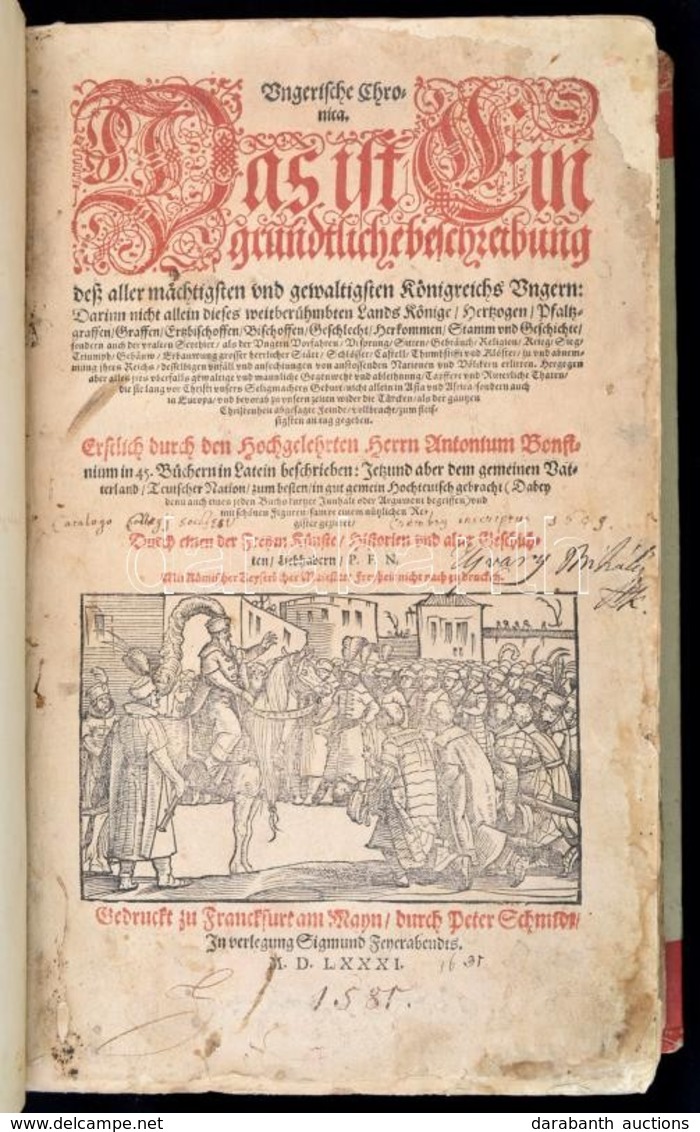 Vngerische Chro-
nica.
Das ist Ein
gründtliche beschreibung
deß aller mächtigsten vnd gewaltigsten Königreichs Vngern:
Darinn nicht allein dieses weitberühmbten Lands Könige / Hertzogen / Pfaltz-
graffen / Graffen / Ertzbischoffen / Bischoffen / Geschlecht / Herkommen / Stamm vnd Geschichte /
sondern auch der vralten Scythier / als der Vngern Vorfahren / Vrsprung / Sitten / Gebräuch / Religion / Krieg / Sieg /
Triumph / Gebäuw / Erbauwung grosser herrlicher Stätt / Schlösser / Castell / Thumbstifft vnd Klöster / zu vnd abnem-
mung ihres Reichs / desselbigen vnfäll vnd anfechtungen von anstossenden Nationen vnd Völckern erlitten. Hergegen
aber alles jres vberfalls gewaltige vnd mannliche Gegenwehr vnd ableihnung / Tapffere vnd Ritterliche Thaten /
die sie lang vor Christi vnsers Seligmachers Geburt / nicht allein in Asia vnd Africa / sondern auch
in Europa / vnd bevorab zu vnsern zeiten wider die Türcken / als der gantzen
Christenheit abgesagte Feinde / vollbracht / zum fleis-
sigsten an tag gegeben.
Erstlich durch den Hochgelehrten Herrn Antonium Bonfi-
nium in 45. Büchern in Latein beschrieben: Jetzund aber dem gemeinen Vat-
terland / Teutscher Nation / zum besten / in gut gemein Hochteutsch gebracht (Dabey
denn auch eines jeden Buchs kurtzer Innhalt oder Argument begriffen) vnd
mit schönen Figuren / samt einem nützlichen Re-
gister gezieret /
Catalogo
inscriptus
Durch einen der Freyen Künste / Historien vnd alter Geschich-
ten / Liebhabern / P. F. N.
Ujvary Mihály
Mit Römischer Keyserlicher Maiestat Freyheit nicht nach zudrucken.
Gedruckt zu Franckfurt am Mayn / durch Peter Schmidt /
In verlegung Sigmund Feyerabendts.
M. D. LXXXI.
1581.
darabanth
delcampe.net
darabanth auctions